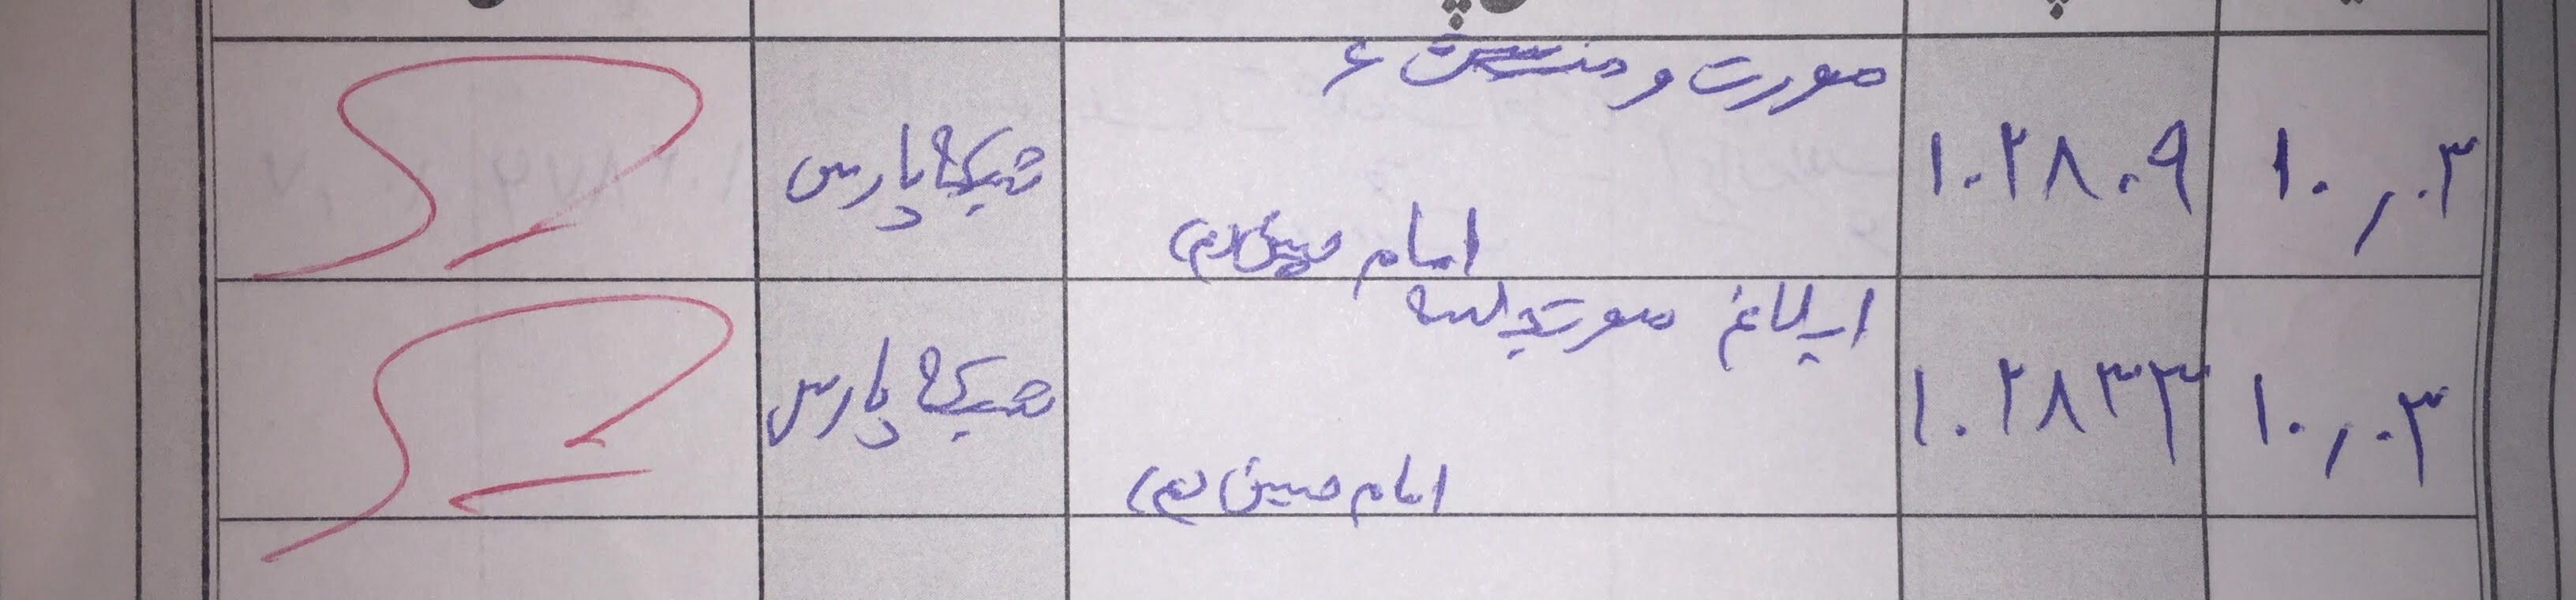 ۱۰٫۰۳
۱۰۲۸۰۹
صورت و
امام حسین (ع)
شبکه پارس
۱۰٫۰۳
۱۰۲۸۳۳
ابلاغ صورتجلسه
امام حسین (ع)
شبکه پارس